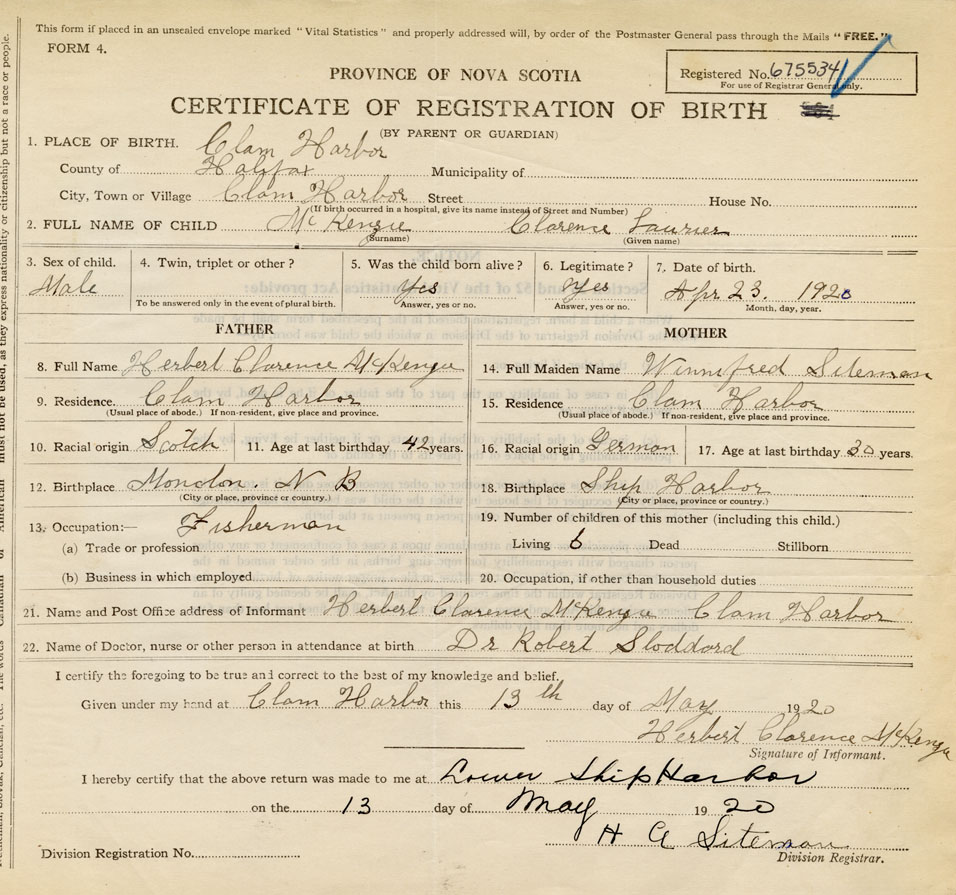 This form if placed in an unsealed envelope marked "Vital Statistics" and properly addressed will, by order of the Postmaster General pass through the Mails "FREE."
FORM 4.
Registered No. 675534
For use of Registrar General only.
PROVINCE OF NOVA SCOTIA
CERTIFICATE OF REGISTRATION OF BIRTH
(BY PARENT OR GUARDIAN)
1. PLACE OF BIRTH. Clam Harbor
County of Halifax Municipality of
City, Town or Village Clam Harbor Street House No.
(If birth occurred in a hospital, give its name instead of Street and Number)
2. FULL NAME OF CHILD McKenzie Clarence Laurier
(Surname) (Given name)
3. Sex of child. 4. Twin, triplet or other? 5. Was the child born alive? 6. Legitimate? 7. Date of birth.
Male Yes Yes Apr 23. 1920
To be answered only in the event of plural birth. Answer, yes or no. Answer, yes or no. Month, day, year.
FATHER MOTHER
8. Full Name Herbert Clarence McKenzie 14. Full Maiden Name Winnifred Siteman
9. Residence. Clam Harbor 15. Residence Clam Harbor
(Usual place of abode.) If non-resident, give place and province. (Usual place of abode.) If non-resident, give place and province.
10. Racial origin Scotch 11. Age at last birthday 42 years. 16. Racial origin German 17. Age at last birthday 30 years.
12. Birthplace Moncton. N B 18. Birthplace Ship Harbor
(City or place, province or country.) (City or place, province or country.)
13. Occupation:— Fisherman 19. Number of children of this mother (including this child.)
(a) Trade or profession Living 6 Dead Stillborn
(b) Business in which employed 20. Occupation, if other than household duties
21. Name and Post Office address of Informant Herbert Clarence McKenzie Clam Harbor
22. Name of Doctor, nurse or other person in attendance at birth Dr Robert Stoddard
I certify the foregoing to be true and correct to the best of my knowledge and belief.
Given under my hand at Clam Harbor this 13th day of May 1920
Herbert Clarence McKenzie
Signature of Informant.
I hereby certify that the above return was made to me at Lower Ship Harbor
on the 13 day of May 1920
H A Siteman
Division Registration No. Division Registrar.